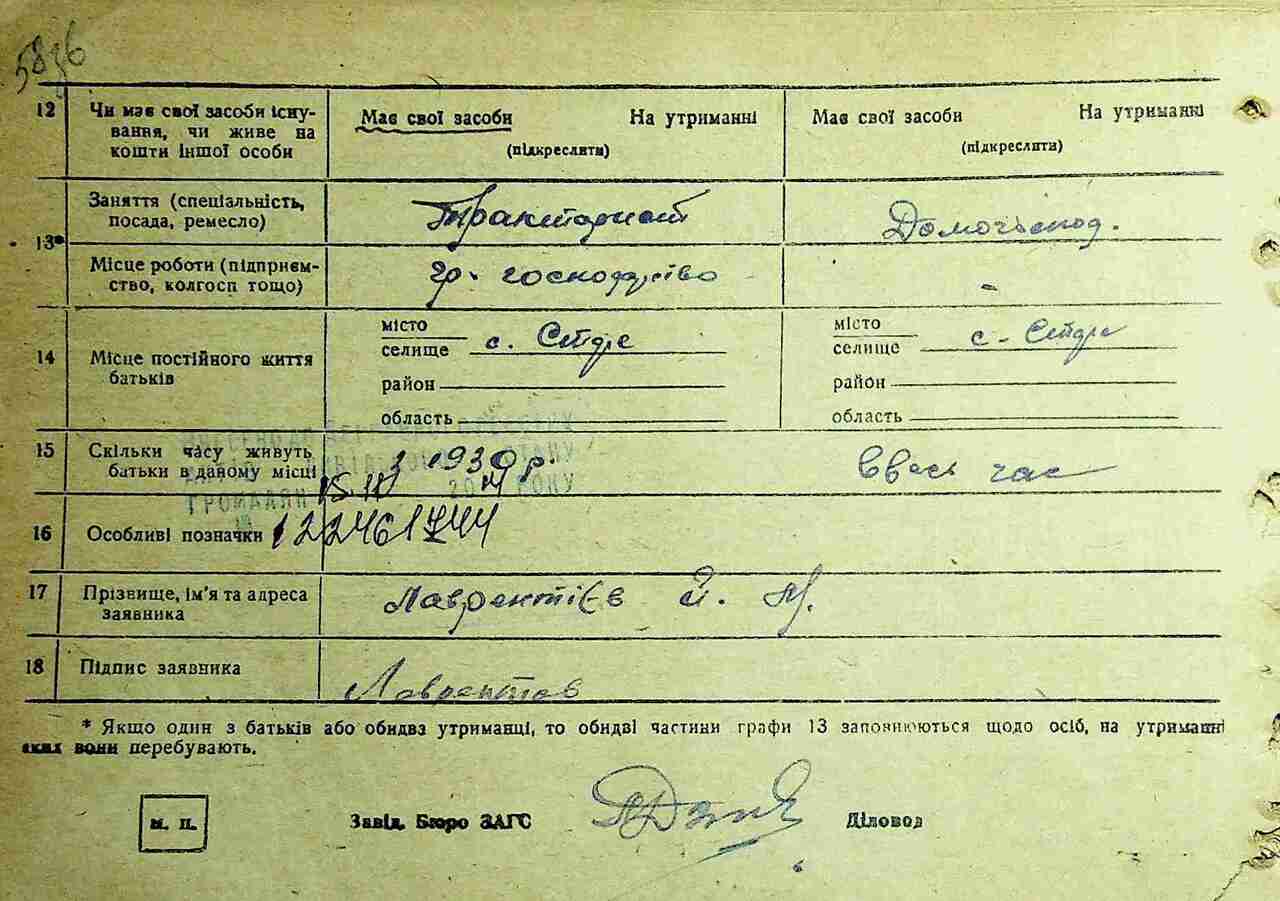 5836
12 Чи має свої засоби існу- Має свої засоби На утриманні Має свої засоби На утриманні
вання, чи живе на
кошти іншої особи (підкреслити) (підкреслити)
Заняття (спеціальність, Тракторист Домогоспод.
посада, ремесло)
13*
Місце роботи (підприєм- гр. господарство -
ство, колгосп тощо)
місто місто
селище с. селище с.
14 Місце постійного життя
батьків район район
область область
15 Скільки часу живуть З 1930 р. Ввесь час
батьки в даному місці
ГРОМАДЯН 20 РОКУ
16 Особливі позначки
17 Прізвище, ім'я та адреса Лаврентієв Й. М.
заявника
18 Підпис заявника Лаврентієв
* Якщо один з батьків або обидва утриманці, то обидві частини графи 13 заповнюються щодо осіб, на утриманні
яких вони перебувають.
м. п. Завід. Бюро ЗАГС Діловод